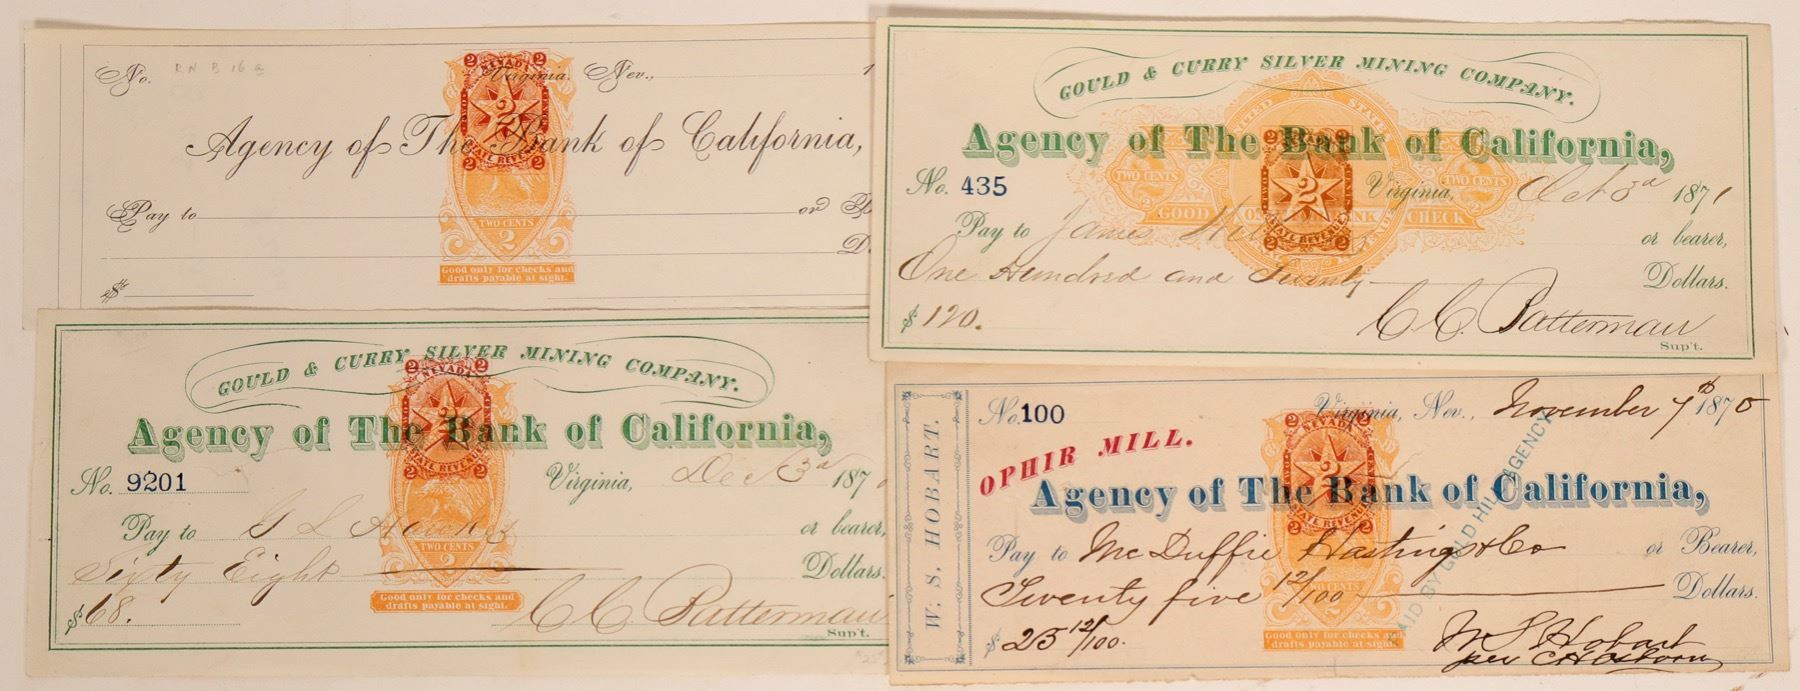 No. R N B 16 a Virginia, Nev., 1
NEVADA
2
STATE REVENUE
Agency of The Bank of California,
Pay to or
TWO CENTS
2
$
Good only for checks and
drafts payable at sight.
GOULD & CURRY SILVER MINING COMPANY.
Agency of The Bank of California,
UNITED STATES
TWO CENTS TWO CENTS
GOOD CHECK
2
STATE REVENUE
No. 435 Virginia, Oct 3d 1871
Pay to James or bearer,
One Hundred and Twenty Dollars.
$ 120. C C. Batterman
Sup't.
GOULD & CURRY SILVER MINING COMPANY.
NEVADA
2
STATE REVENUE
Agency of The Bank of California,
No. 9201 Virginia, Dec 3d 187
Pay to G L or bearer,
Sixty Eight Dollars.
TWO CENTS
2
$ 68. C C. Batterman
Sup't.
Good only for checks and
drafts payable at sight.
W. S. HOBART.
No. 100 Virginia, Nev., November 7th 1870
OPHIR MILL.
NEVADA
2
STATE REVENUE
Agency of The Bank of California,
Pay to McDuffie Hastings & Co or Bearer,
Twenty five 12/100 Dollars.
$ 25 12/100. W S Hobart
per C H Osborn
TWO CENTS
2
Good only for checks and
drafts payable at sight.
PAID BY GOLD HILL AGENCY